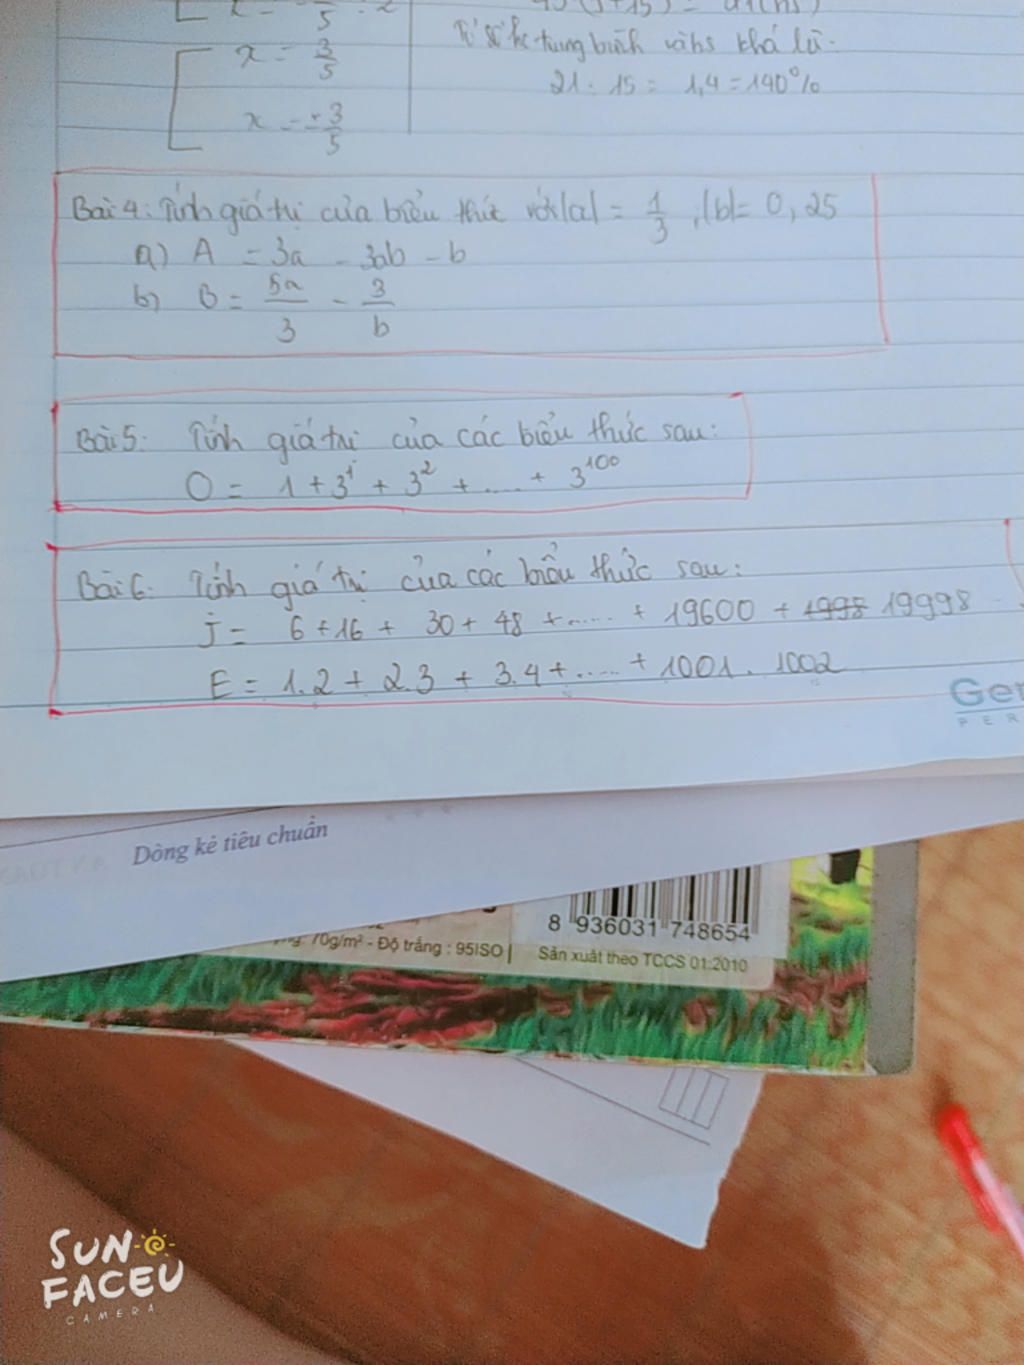 x = 3/5
Tỉ số hs trung bình và hs khá là:
21 : 15 = 1,4 = 140%
x = -3/5
Bài 4: Tính giá trị của biểu thức với |a| = 1/3, |b| = 0,25
a) A = 3a - 3ab - b
b) B = 5a/3 - 3/b
Bài 5: Tính giá trị của các biểu thức sau:
O = 1 + 3^1 + 3^2 + .... + 3^100
Bài 6: Tính giá trị của các biểu thức sau:
J = 6 + 16 + 30 + 48 + ..... + 19600 + 19998
E = 1.2 + 2.3 + 3.4 + ..... + 1001.1002
Ger
PER
Dòng kẻ tiêu chuẩn
70g/m² - Độ trắng : 95ISO
8 936031 748654
Sản xuất theo TCCS 01:2010
SUN
FACEU
CAMERA